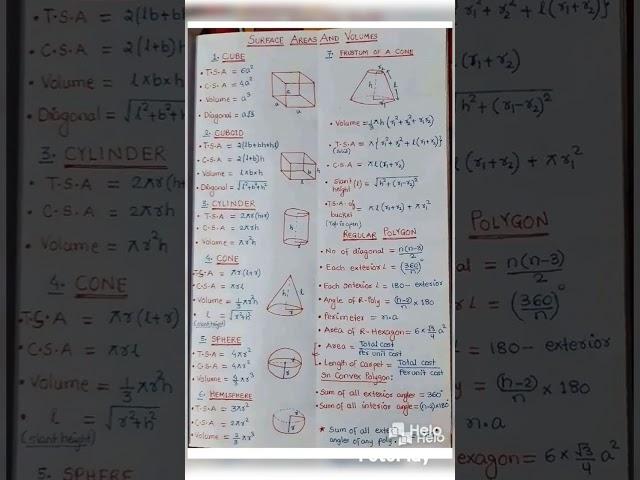 SURFACE AREAS AND VOLUMES
1. CUBE
• T.S.A = 6a²
• C.S.A = 4a²
• Volume = a³
• Diagonal = a√3
2. CUBOID
• T.S.A = 2(lb+bh+hl)
• C.S.A = 2(l+b)h
• Volume = l×b×h
• Diagonal = √l²+b²+h²
3. CYLINDER
• T.S.A = 2πr(h+r)
• C.S.A = 2πrh
• Volume = πr²h
4. CONE
T.S.A = πr(l+r)
C.S.A = πrl
Volume = 1/3 πr²h
• l = √r²+h²
(slant height)
5. SPHERE
T.S.A = 4πr²
C.S.A = 4πr²
Volume = 4/3 πr³
6. HEMISPHERE
T.S.A = 3πr²
C.S.A = 2πr²
Volume = 2/3 πr³
7. FRUSTUM OF A CONE
• Volume = 1/3 πh(r₁²+r₂²+r₁r₂)
• T.S.A = π{r₁²+r₂²+l(r₁+r₂)}
• C.S.A = πl(r₁+r₂)
• Slant height (l) = √h²+(r₁-r₂)²
• T.S.A. of bucket = πl(r₁+r₂)+πr₁²
(Top is open)
REGULAR POLYGON
• No of diagonal = n(n-3)/2
• Each exterior L = (360/n)°
• Each interior L = 180 - exterior
• Angle of R-Poly = (n-2)/n × 180
• Perimeter = n•a
• Area of R-Hexagon = 6×√3/4 a²
• Area = Total cost/Per unit cost
• Length of carpet = Total cost/Per unit cost
In Convex Polygon:
• Sum of all exterior angle = 360°
• Sum of all interior angle = (n-2)×180°
★ Sum of all
angles of any poly.
Helo
Helo